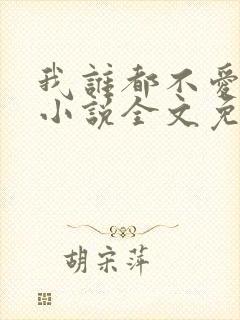 我誰都不愛
小說全文免
胡宋萍